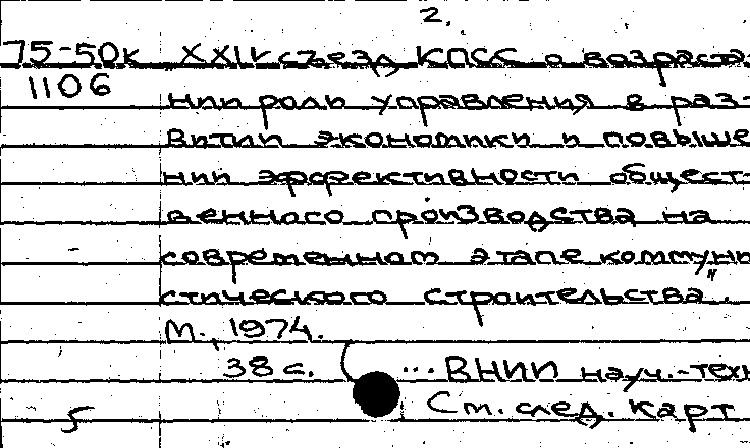 2.
75-50к XXIV съезд КПСС о возраста-
1106
нии роль управления в раз-
витии экономики и повыше
нии эффективности общест-
венного производства на
современном этапе коммуни
стического строительства".
М., 1974.
38 с. (... ВНИИ науч.-техн
5 См. след. карт